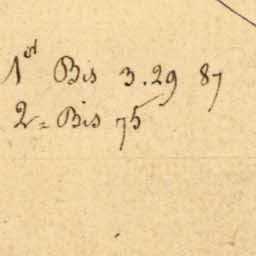 1er Bis 3.29 87
2= Bis 75